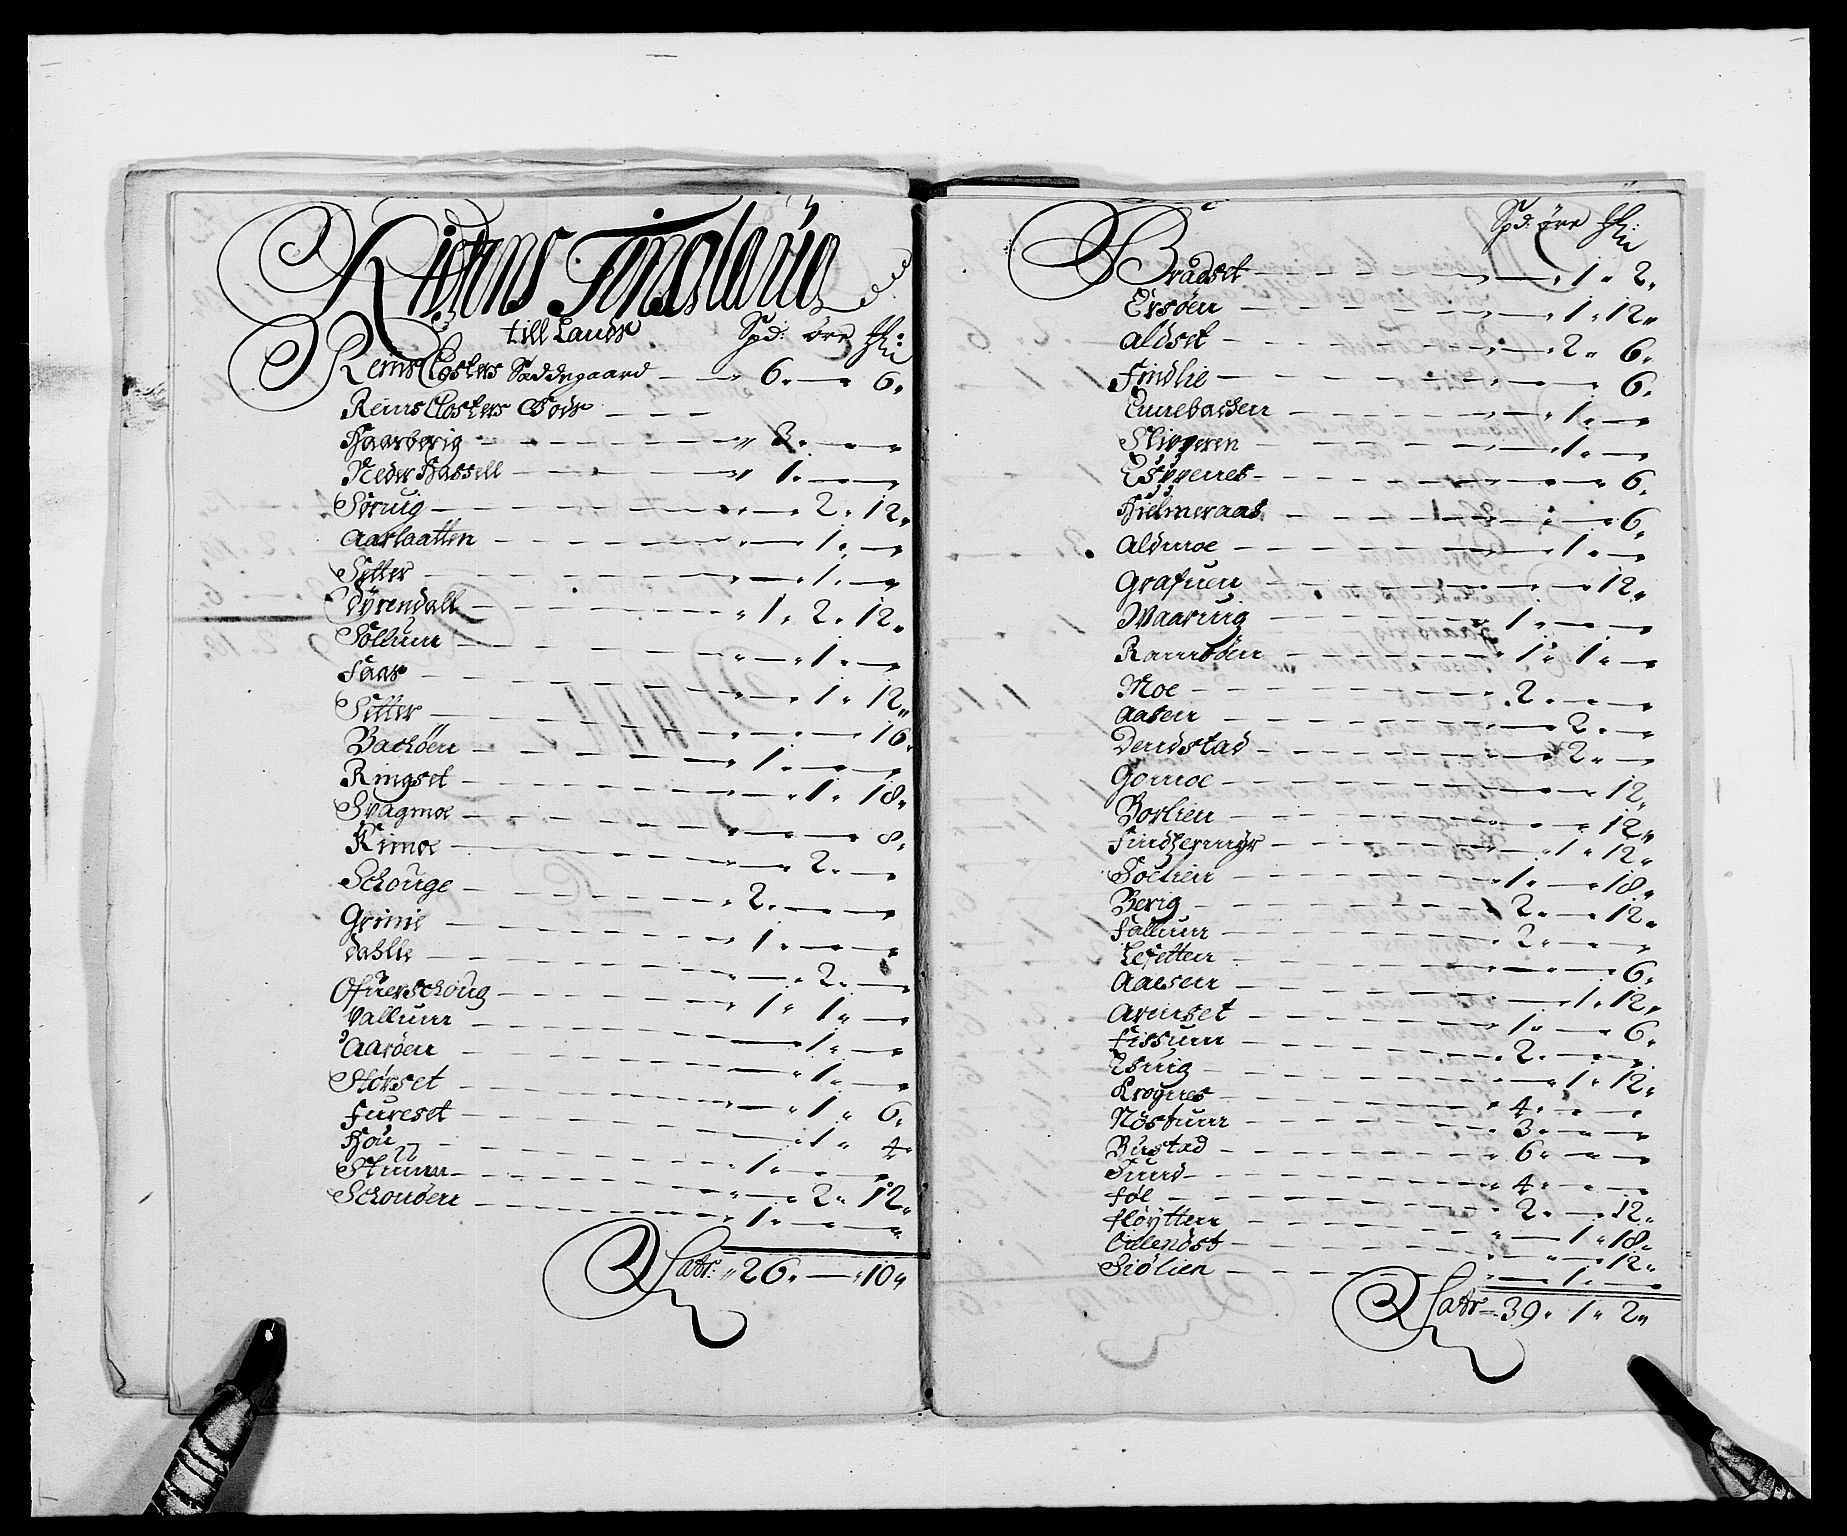 Rissens Tinglaug
till Lands Spd: øre
Reins Closters Sæddegaard — 6. — 6.
Reins Closters Gods
Haarberig — 3. — —
Neder Hassell — 1. — —
Sørvig — 2. 12.
Aarlaatten — 1. —
Setter — 1. —
Dÿrendall — 1. 2. 12.
Sollum — 1. —
Saas — 1. 12.
Setter — 16.
Bachøen — 1. — —
Ringset — 1. 18.
Svagmoe — 8.
Rimoe — 2. —
Schouge — 2. — —
Grinie — 1. — —
Dahlle — 2. —
Ofuerschoug — 1. 1. —
Vallum — 1. —
Aarøen — 1. —
Størset — 1. 6.
Fureset — 1. 4.
Hou — 1. — —
Stuum — 2. 12.
Schouøen — 1. — —
Latr: 26. — 10.
Spd: øre
Braaset — 1. 2.
Ersøen — 1. 12.
Aldset — 2. 6.
Findlie — 6.
Ennebachen — 1. —
Slipperen — 1. —
Espenes — 6.
Hielmeraas — 6.
Aldmoe — 1. —
Grafuen — 12.
Waarvig — 1. — —
Ramsøen — 1. 1. —
Moe — 2. — —
Aasen — 2. —
Dendstad — 2. —
Gomoe — 12.
Borlien — 12.
Findhermÿr — 1. 12.
Soelien — 1. — 18.
Berig — 2. — 12.
Fallum — 2. — —
Lesetten — 6.
Aaesen — 1. 12.
Arnset — 1. — 6.
Fissum — 2. — —
Esvig — 1. 12.
Krognes — 4. — —
Nøstum — 3. — —
Bustad — 6. — —
Sund — 4. — —
Føl — 2. — 12.
Fløÿtten — 1. 18.
— 12.
Siølien — 1. —
Latr: 39. 1. 2.